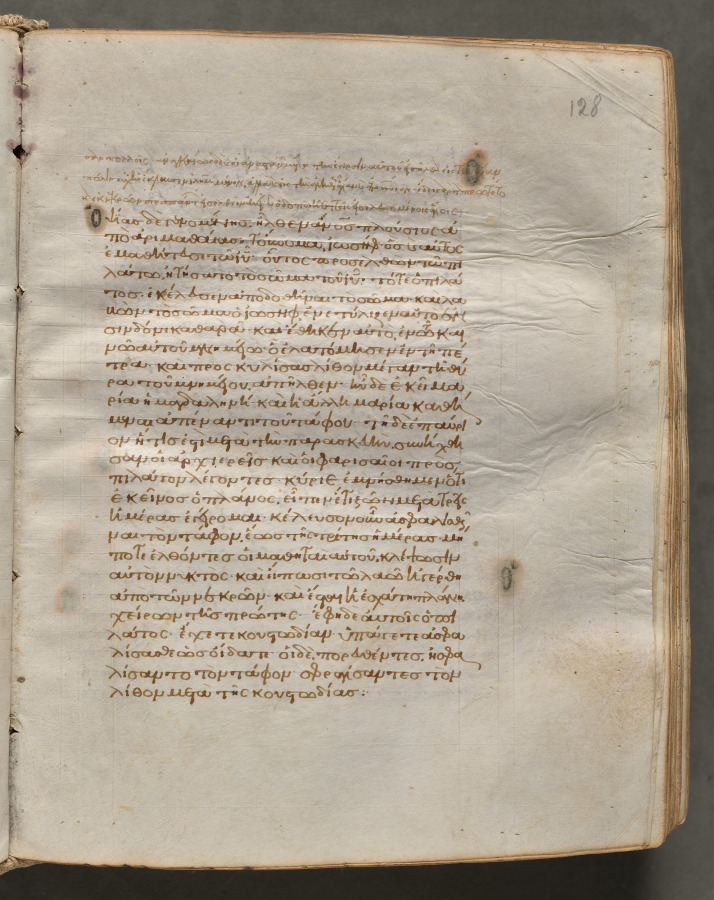 128
Ὀψίας δὲ γενομένης· ἦλθεν ἄνος πλούσιος ἀ
πὸ ἀριμαθαίας· τοὔνομα, ἰωσὴφ· ὃς καὶ αὐτὸς
ἐμαθήτευσε τῶ ἰῦ· οὗτος προσελθὼν τῶ πι
λάτω, ἠτήσατο τὸ σῶμα τοῦ ἰῦ· τότε ὁ πιλά
τος· ἐκέλευσεν ἀποδοθῆναι τὸ σῶμα· καὶ λα
βὼν τὸ σῶμα ὁ ἰωσὴφ, ἐνετύλιξεν αὐτὸ
σινδόνι καθαρᾶ· καὶ ἔθηκεν αὐτὸ, ἐν τῶ και
νῶ αὐτοῦ μνημείω· ὃ ἐλατόμησεν ἐν τῆ πέ
τρα· καὶ προσκυλίσας λίθον μέγαν τῆ θύ
ρα τοῦ μνημείου, ἀπῆλθεν· ἦν δὲ ἐκεῖ μα
ρία ἡ μαγδαληνὴ καὶ ἡ ἄλλη μαρία καθή
μεναι ἀπέναντι τοῦ τάφου· τῆ δὲ ἐπαύρι
ον ἥτις ἐστὶ μετὰ τὴν παρασκευήν, συνήχθη
σαν οἱ ἀρχιερεῖς καὶ οἱ φαρισαῖοι πρὸς
πιλάτον λέγοντες· κύριε ἐμνήσθημεν ὅτι
ἐκεῖνος ὁ πλάνος, εἶπεν ἔτι ζῶν μετὰ τρεῖς
ἡμέρας ἐγείρομαι· κέλευσον οὖν ἀσφαλισθῆ
ναι τὸν τάφον, ἕως τῆς τρίτης ἡμέρας· μή
ποτε ἐλθόντες οἱ μαθηταὶ αὐτοῦ, κλέψωσιν
αὐτὸν νυκτὸς· καὶ εἴπωσι τῶ λαῶ ἠγέρθη
ἀπὸ τῶν νεκρῶν· καὶ ἔσται ἡ ἐσχάτη πλάνη
χείρων τῆς πρώτης· ἔφη δὲ αὐτοῖς ὁ πι
λάτος· ἔχετε κουστωδίαν· ὑπάγετε ἀσφα
λίσασθε ὡς οἴδατε· οἱ δὲ, πορευθέντες, ἠσφα
λίσαντο τὸν τάφον· σφραγίσαντες τὸν
λίθον μετὰ τῆς κουστωδίας: